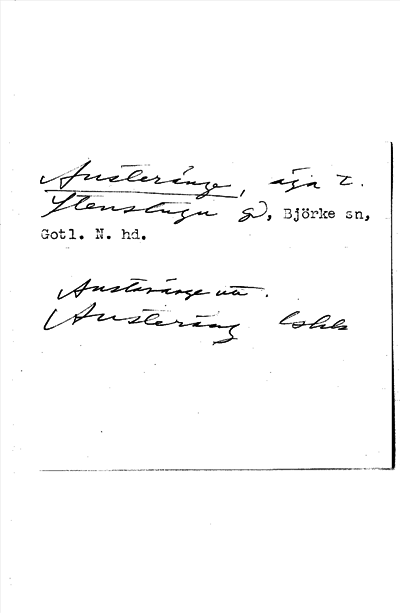 Austeränge, äga t.
Stenstugu gd, Björke sn,
Gotl. N. hd.
Austaränge uta.
Austeräng